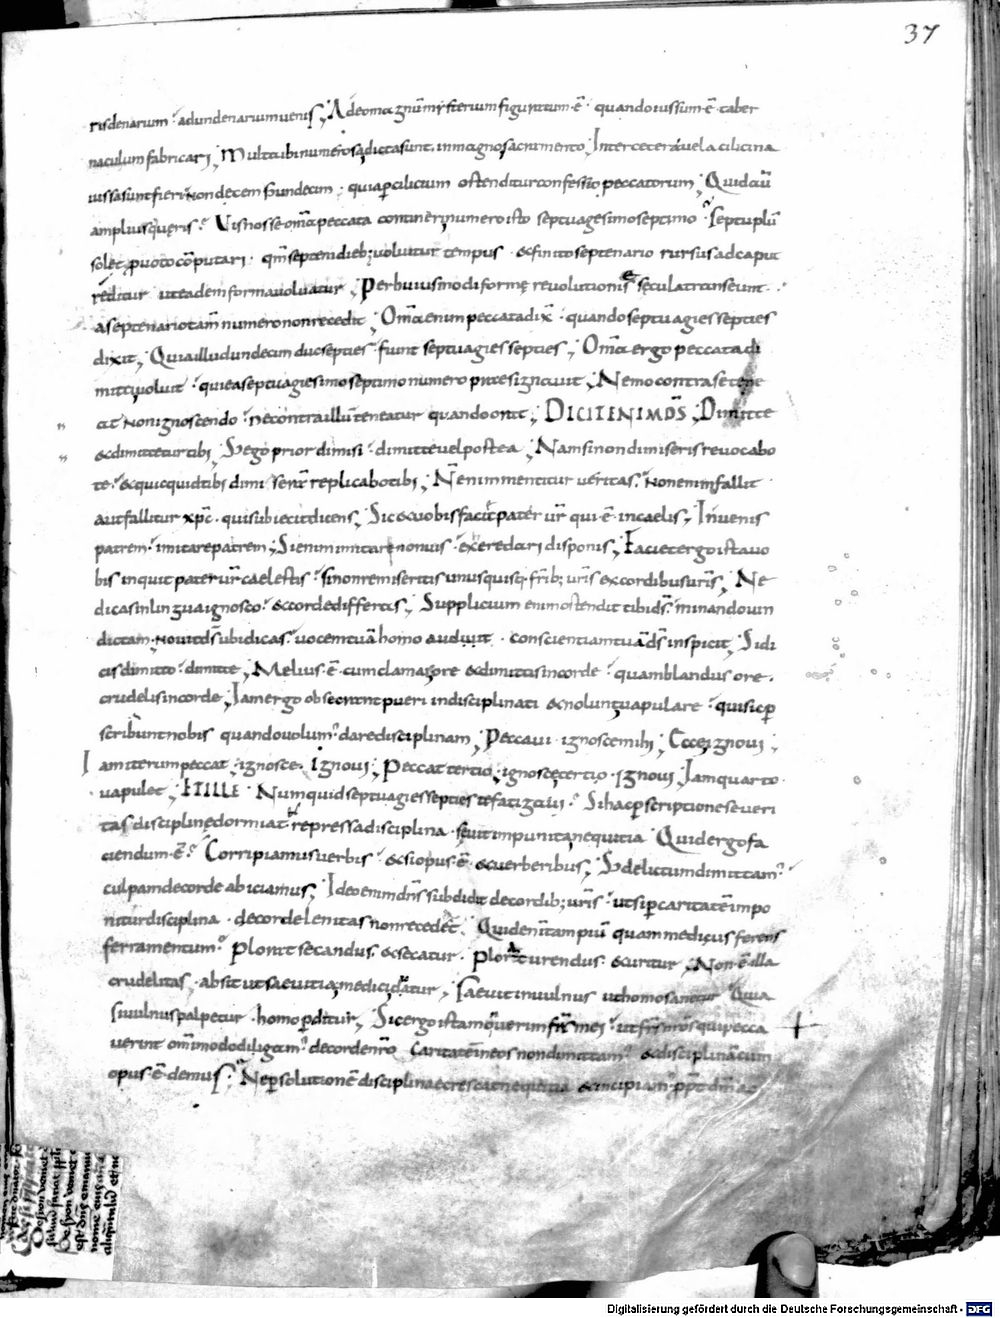 37
risdenarium · adundenariumuenis ; Adeomagnūmysteriumfiguratum·ē· quandoiussum·ē· taber
naculumfabricari ; Multaibinumerosędictasunt· inmagnosacramento ; Intercetera uela cilicina
iussasuntfieri nondecem sundecim · quiapcilicium ostenditurconfessio peccatorum ; Quidcū
ampliusquęris? Uisnosse omā peccata contineri numeroisto septuagesimoseptimo · septuplū
solet puoto cōputari · qm̄septemdieb; uoluitur tempus · &finitoseptenario rursus adcaput
reditur uteademformauoluatur ; Perhuiusmodi formę reuolutionis sęculatranseunt ·
aseptenariotam̄ numerononrecedit ; Omā enim peccatadix̄ · quandoseptuagiessepties
dixit ; Quiailludundecim ducsepties · fiunt septuagiessepties ; Omā ergo peccatadi
mittiuoluit · quieaseptuagesimoseptimo numero presignauit ; Nemocontrasetene
at nonignoscendo · necontraillūteneatur quandoorat ; DICITENIMDS̄ ; Dimitte
&dimitteturtibi ; Sego prior dimisi · dimittevelpostea ; Namsinondimiseris reuocabo
te · &quicquidtibi dimiserā replicabotibi ; Nenimmentitur ueritas · nonenimfallit
autfallitur xp̄c · quisubiecitdicens ; Sic&uobisfaci& pater ur̄ qui·ē· incaelis ; Inuenis
patrem · imitarepatrem ; Sienimimitarenonuis · exheredari disponis ; Faci&ergoistauo
bis inquit pater ur̄ caelestis · sinonremiseritis unusquisq· fr̄ib; ur̄is excordibusur̄is ; Ne
dicasinlinguaignosco · &cordedifferas ; Supplicium enimostendit tibids̄ · minandouin
dictam · nouitds̄ubidicas · uocemtuā homo audiuit · conscientiamtuā ds̄ inspicit ; Sidi
cisdimitto · dimitte ; Melius·ē· cumclamasore &dimittisincorde · quamblandus ore ·
crudelisincorde ; Iamergo obsecrant pueri indisciplinati &noluntuapulare · quisicp
scribuntnobis quandouolum·daredisciplinam ; Peccaui · ignoscemihi ; Ecceignoui ;
Iamiterumpeccat · ignosce · ignoui ; Peccattertio · ignoscetertio · ignoui ; Iamquarto
uapulet ; ETILLE · Numquidseptuagiessepties tefatigaui? Sihacpscriptioneseueri
tasdisciplinędormiat · repressadisciplina · sęuitimpunitanequitia · Quidergofa
ciendum·ē·? Corripiamusuerbis · &siopus·ē· &uerberibus ; Sdelictumdimittam·
culpamdecorde abiciamus ; Ideoenimdn̄s subdidit decordib; ur̄is · utsip caritatē impo
niturdisciplina · decordelenitas nonrecedat · Quidenītampiū quammedicus ferens
ferramentum? Plorat secandus · &secatur · Plorat urendus · &uritur ; Non·ē·illa
crudelitas · absit utsaeuitiamedicidicatur ; Saeuitinuulnus uthomosanetur · Quia
siuulnuspalpetur · homo pditur ; Sicergo istamoueriṁ fr̄s mei · utfr̄s nr̄os quipecca
uerint om̄imododiligam· decordenr̄o caritatē ineos nondimittam· &disciplinācum
opus·ē·demus ; Nepsolutionē disciplinae crescatnequitia &incipiam· pp̄t dm̄ ac
Digitalisierung gefördert durch die Deutsche Forschungsgemeinschaft - DFG